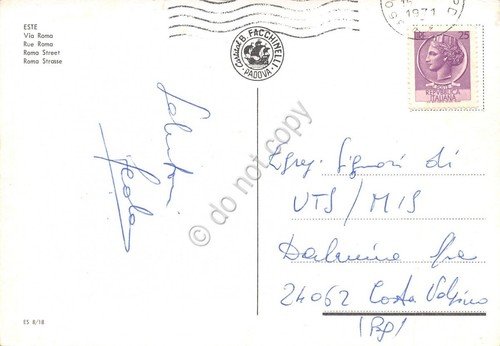 ESTE
Via Roma
Rue Roma
Roma Street
Roma Strasse
Cartedit B. FACCHINELLI
PADOVA
1971
L. 25
REPVBBLICA
ITALIANA
Saluti
Egreg. Signori di
UTS/MIS
Dalmine Spa
24062 Costa Volpino
(Bg)
ES 8/18
do not copy